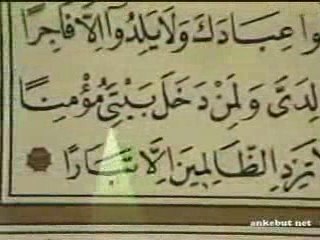 وا عِبَادَكَ وَلَا يَلِدُوٓا اِلَّا فَاجِرًا
لِدَىَّ وَلِمَنْ دَخَلَ بَيْتِىَ مُؤْمِنًا
تَزِدِ الظَّالِمِينَ اِلَّا تَبَارًا
ankebut.net